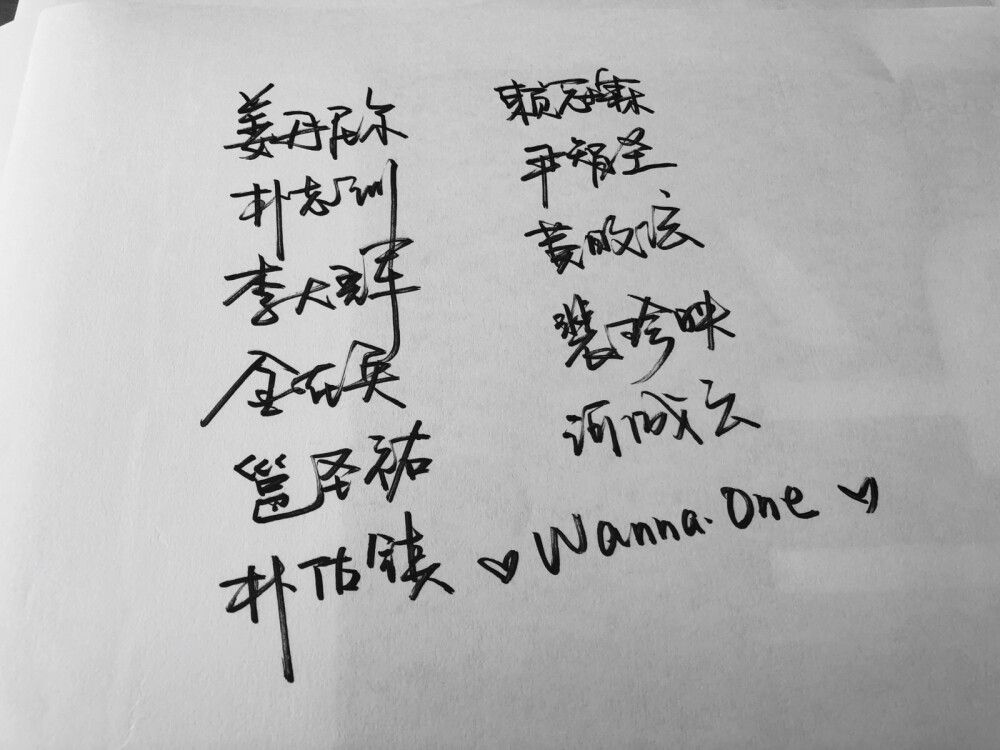 姜丹尼尔
朴志训
李大辉
金在奂
邕圣祐
朴佑镇
赖冠霖
尹智圣
黄旼泫
裴珍映
河成云
Wanna·One